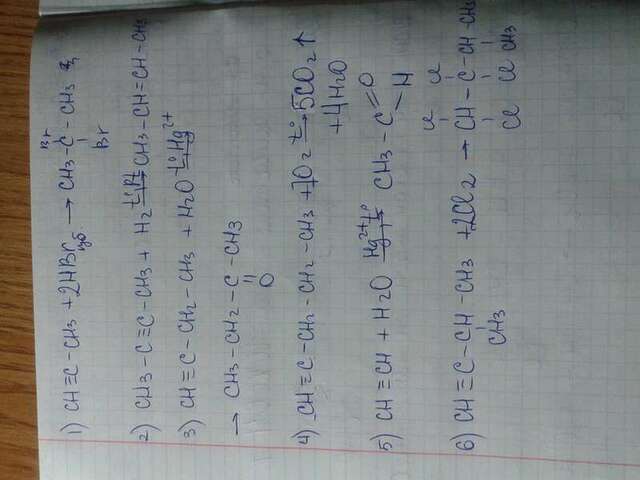 1) CH≡C-CH3 + 2HBr изб → CH3-C(Br)(Br)-CH3
2) CH3-C≡C-CH3 + H2 t°, Pt → CH3-CH=CH-CH3
3) CH≡C-CH2-CH3 + H2O t°, Hg2+
→ CH3-CH2-C(=O)-CH3
4) CH≡C-CH2-CH2-CH3 + 7O2 t° → 5CO2↑
+ 4H2O
5) CH≡CH + H2O Hg2+, t° → CH3-C(=O)-H
6) CH≡C-CH(CH3)-CH3 + 2Cl2 → CH(Cl)(Cl)-C(Cl)(Cl)-CH(CH3)-CH3